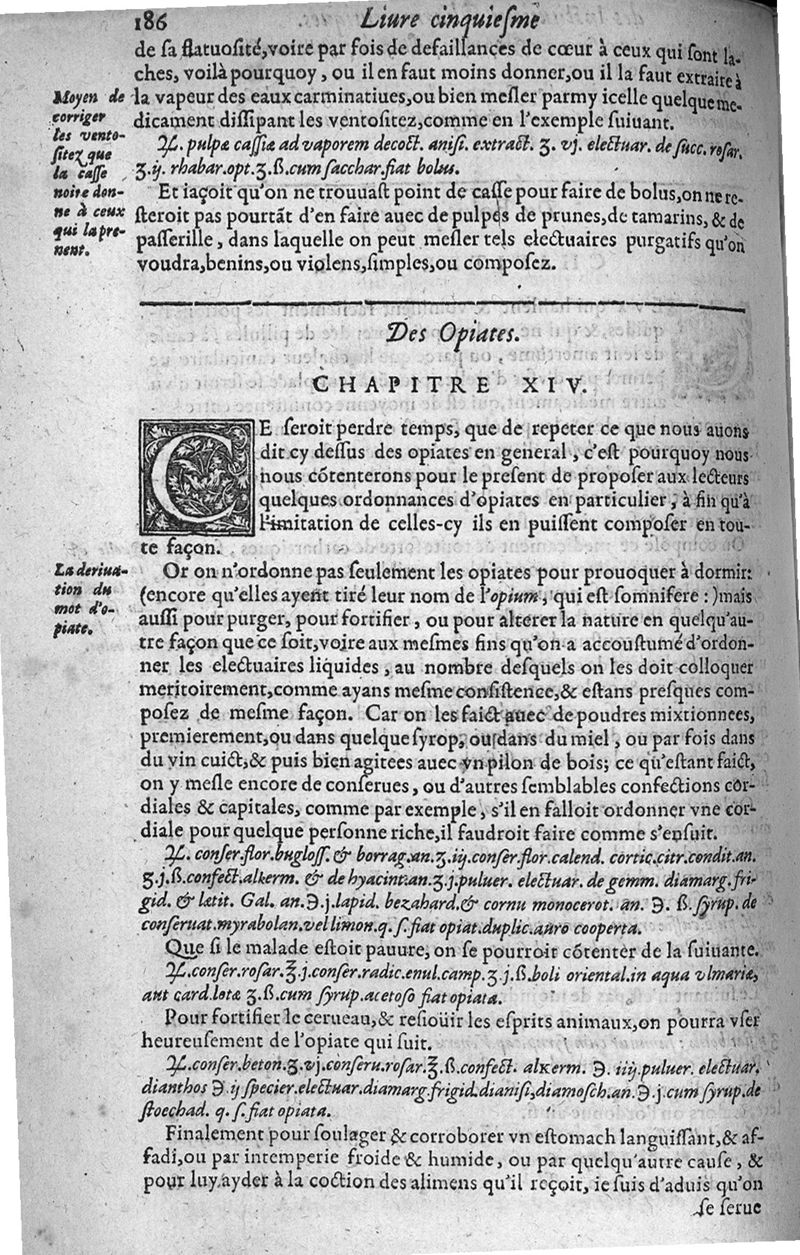 186
Liure cinquieſme
de ſa flatuoſité, voire par fois de defaillances de cœur à ceux qui ſont la-
ches, voilà pourquoy, ou il en faut moins donner, ou il la faut extraire à
la vapeur des eaux carminatiues, ou bien meſler parmy icelle quelque me-
dicament diſſipant les ventoſitez, comme en l'exemple ſuiuant.
Moyen de
corriger
les vento-
ſitez que
la caſſe
noire don-
ne à ceux
qui la pre-
nent.
℞. pulpæ caſſiæ ad vaporem decoct. aniſi. extract. ʒ. vj. electuar. de ſucc. roſar.
ʒ. ij. rhabar. opt. ʒ. ß. cum ſacchar. fiat bolus.
Et iaçoit qu'on ne trouuaſt point de caſſe pour faire de bolus, on ne re-
ſteroit pas pourtāt d'en faire auec de pulpes de prunes, de tamarins, & de
paſſerille, dans laquelle on peut meſler tels electuaires purgatifs qu'on
voudra, benins, ou violens, ſimples, ou compoſez.
Des Opiates.
CHAPITRE XIV.
CE ſeroit perdre temps, que de repeter ce que nous auons
dit cy deſſus des opiates en general, c'eſt pourquoy nous
nous cōtenterons pour le preſent de propoſer aux lecteurs
quelques ordonnances d'opiates en particulier, à fin qu'à
l'imitation de celles-cy ils en puiſſent compoſer en tou-
te façon.
La deriua-
tion du
mot d'o-
piate.
Or on n'ordonne pas ſeulement les opiates pour prouoquer à dormir:
(encore qu'elles ayent tiré leur nom de l'opium, qui eſt ſomnifere:) mais
auſſi pour purger, pour fortifier, ou pour alterer la nature en quelqu'au-
tre façon que ce ſoit, voire aux meſmes fins qu'on a accouſtumé d'ordon-
ner les electuaires liquides, au nombre deſquels on les doit colloquer
meritoirement, comme ayans meſme conſiſtence, & eſtans preſques com-
poſez de meſme façon. Car on les faict auec de poudres mixtionnees,
premierement, ou dans quelque ſyrop, ou dans du miel, ou par fois dans
du vin cuict, & puis bien agitees auec vn pilon de bois; ce qu'eſtant faict,
on y meſle encore de conſerues, ou d'autres ſemblables confections cor-
diales & capitales, comme par exemple, s'il en falloit ordonner vne cor-
diale pour quelque perſonne riche, il faudroit faire comme s'enſuit.
℞. conſer. flor. bugloſſ. & borrag. an. ʒ. iij. conſer. flor. calend. cortic. citr. condit. an.
ʒ. j. ß. confect. alkerm. & de hyacint. an. ʒ. j. puluer. electuar. de gemm. diamarg. fri-
gid. & lætit. Gal. an. ℈. j. lapid. bezahard. & cornu monocerot. an. ℈. ß. ſyrup. de
conſeruat. myrabolan. vel limon. q. ſ. fiat opiat. duplic. auro cooperta.
Que ſi le malade eſtoit pauure, on ſe pourroit cōtenter de la ſuiuante.
℞. conſer. roſar. ℥. j. conſer. radic. enul. camp. ʒ. j. ß. boli oriental. in aqua vlmariæ,
aut card. lotæ ʒ. ß. cum ſyrup. acetoſo fiat opiata.
Pour fortifier le cerueau, & reſioüir les eſprits animaux, on pourra vſer
heureuſement de l'opiate qui ſuit.
℞. conſer. beton. ʒ. vj. conſeru. roſar. ℥. ß. confect. alkerm. ℈. iiij. puluer. electuar.
dianthos ℈. ij ſpecier. electuar. diamarg. frigid. dianiſi, diamoſch. an. ℈. j. cum ſyrup. de
ſtoechad. q. ſ. fiat opiata.
Finalement pour ſoulager & corroborer vn eſtomach languiſſant, & af-
fadi, ou par intemperie froide & humide, ou par quelqu'autre cauſe, &
pour luy ayder à la coction des alimens qu'il reçoit, ie ſuis d'aduis qu'on
ſe ſerue